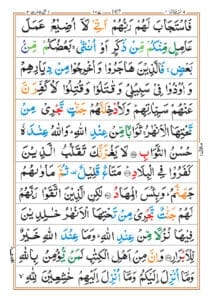 فَاسْتَجَابَ لَهُمْ رَبُّهُمْ اَنِّيْ لَاۤ اُضِيْعُ عَمَلَ
عَامِلٍ مِّنْكُمْ مِّنْ ذَكَرٍ اَوْ اُنْثٰى ۚ بَعْضُكُمْ مِّنْۢ
بَعْضٍ ۚ فَالَّذِيْنَ هَاجَرُوْا وَاُخْرِجُوْا مِنْ دِيَارِهِمْ
وَاُوْذُوْا فِيْ سَبِيْلِيْ وَقٰتَلُوْا وَقُتِلُوْا لَاُكَفِّرَنَّ
عَنْهُمْ سَيِّاٰتِهِمْ وَلَاُدْخِلَنَّهُمْ جَنّٰتٍ تَجْرِيْ مِنْ
تَحْتِهَا الْاَنْهٰرُ ۚ ثَوَابًا مِّنْ عِنْدِ اللّٰهِ ؕ وَاللّٰهُ عِنْدَهٗ
حُسْنُ الثَّوَابِ ۝ لَا يَغُرَّنَّكَ تَقَلُّبُ الَّذِيْنَ
كَفَرُوْا فِي الْبِلَادِ ۝ مَتَاعٌ قَلِيْلٌ ۟ ثُمَّ مَاْوٰىهُمْ
جَهَنَّمُ ؕ وَبِئْسَ الْمِهَادُ ۝ لٰكِنِ الَّذِيْنَ اتَّقَوْا رَبَّهُمْ
لَهُمْ جَنّٰتٌ تَجْرِيْ مِنْ تَحْتِهَا الْاَنْهٰرُ خٰلِدِيْنَ
فِيْهَا نُزُلًا مِّنْ عِنْدِ اللّٰهِ ؕ وَمَا عِنْدَ اللّٰهِ خَيْرٌ
لِّلْاَبْرَارِ ۝ وَاِنَّ مِنْ اَهْلِ الْكِتٰبِ لَمَنْ يُّؤْمِنُ بِاللّٰهِ
وَمَاۤ اُنْزِلَ اِلَيْكُمْ وَمَاۤ اُنْزِلَ اِلَيْهِمْ خٰشِعِيْنَ لِلّٰهِ ۙ